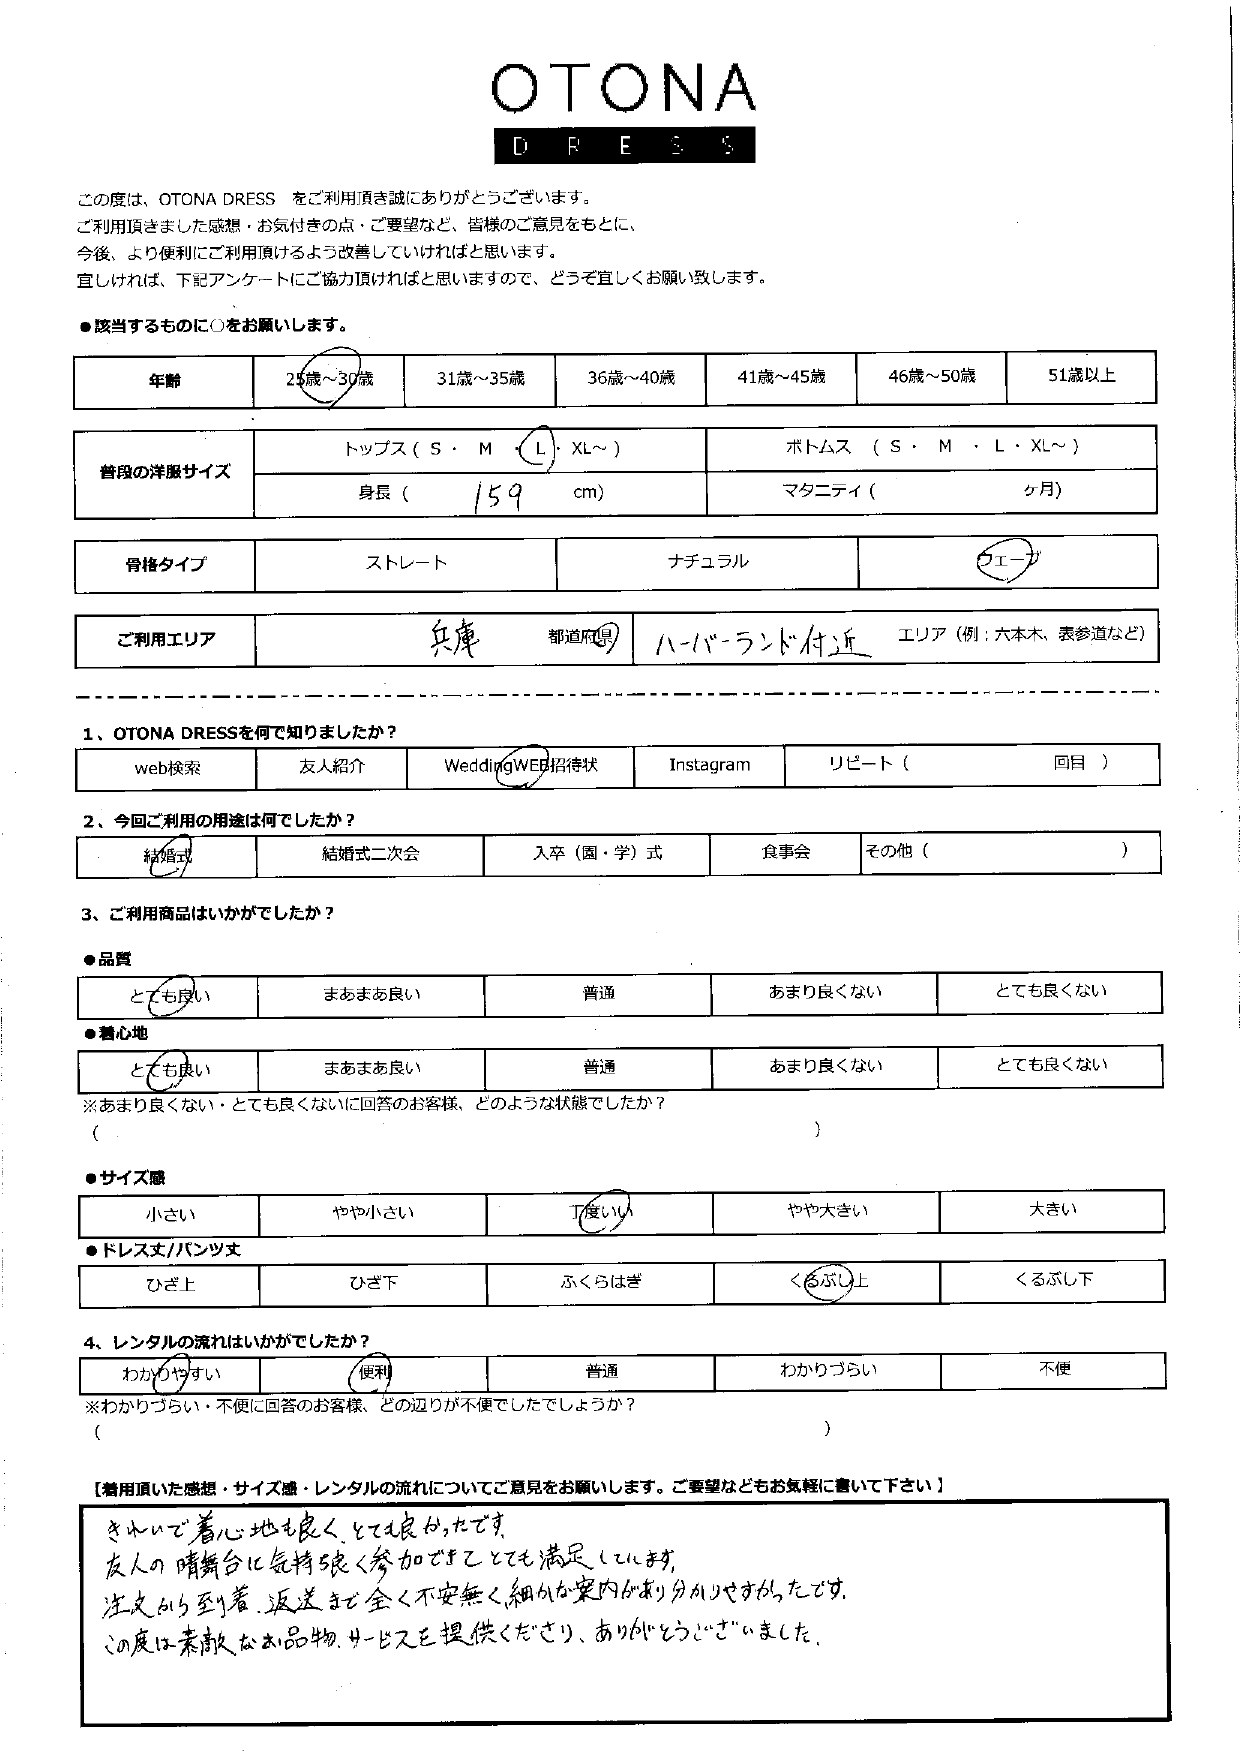 OTONA
DRESS
この度は、OTONA DRESS をご利用頂き誠にありがとうございます。
ご利用頂きました感想・お気付きの点・ご要望など、皆様のご意見をもとに、
今後、より便利にご利用頂けるよう改善していければと思います。
宜しければ、下記アンケートにご協力頂ければと思いますので、どうぞ宜しくお願い致します。
●該当するものに○をお願いします。
年齢 25歳～30歳 31歳～35歳 36歳～40歳 41歳～45歳 46歳～50歳 51歳以上
普段の洋服サイズ トップス ( S ・ M ・ L ・ XL～ ) ボトムス ( S ・ M ・ L ・ XL～ )
身長 ( 159 cm) マタニティ ( ヶ月)
骨格タイプ ストレート ナチュラル ウェーブ
ご利用エリア 兵庫 都道府県 ハーバーランド付近 エリア（例：六本木、表参道など）
1、OTONA DRESSを何で知りましたか？
web検索 友人紹介 WeddingWEB招待状 Instagram リピート ( 回目 )
2、今回ご利用の用途は何でしたか？
結婚式 結婚式二次会 入卒（園・学）式 食事会 その他 ( )
3、ご利用商品はいかがでしたか？
●品質
とても良い まあまあ良い 普通 あまり良くない とても良くない
●着心地
とても良い まあまあ良い 普通 あまり良くない とても良くない
※あまり良くない・とても良くないに回答のお客様、どのような状態でしたか？
( )
●サイズ感
小さい やや小さい 丁度いい やや大きい 大きい
●ドレス丈/パンツ丈
ひざ上 ひざ下 ふくらはぎ くるぶし上 くるぶし下
4、レンタルの流れはいかがでしたか？
わかりやすい 便利 普通 わかりづらい 不便
※わかりづらい・不便に回答のお客様、どの辺りが不便でしたでしょうか？
( )
【着用頂いた感想・サイズ感・レンタルの流れについてご意見をお願いします。ご要望などもお気軽に書いて下さい】
きれいで着心地も良く、とても良かったです。
友人の晴舞台に気持ち良く参加できてとても満足しています。
注文から到着、返送まで全く不安無く、細かな案内があり分かりやすかったです。
この度は素敵なお品物、サービスを提供くださり、ありがとうございました。